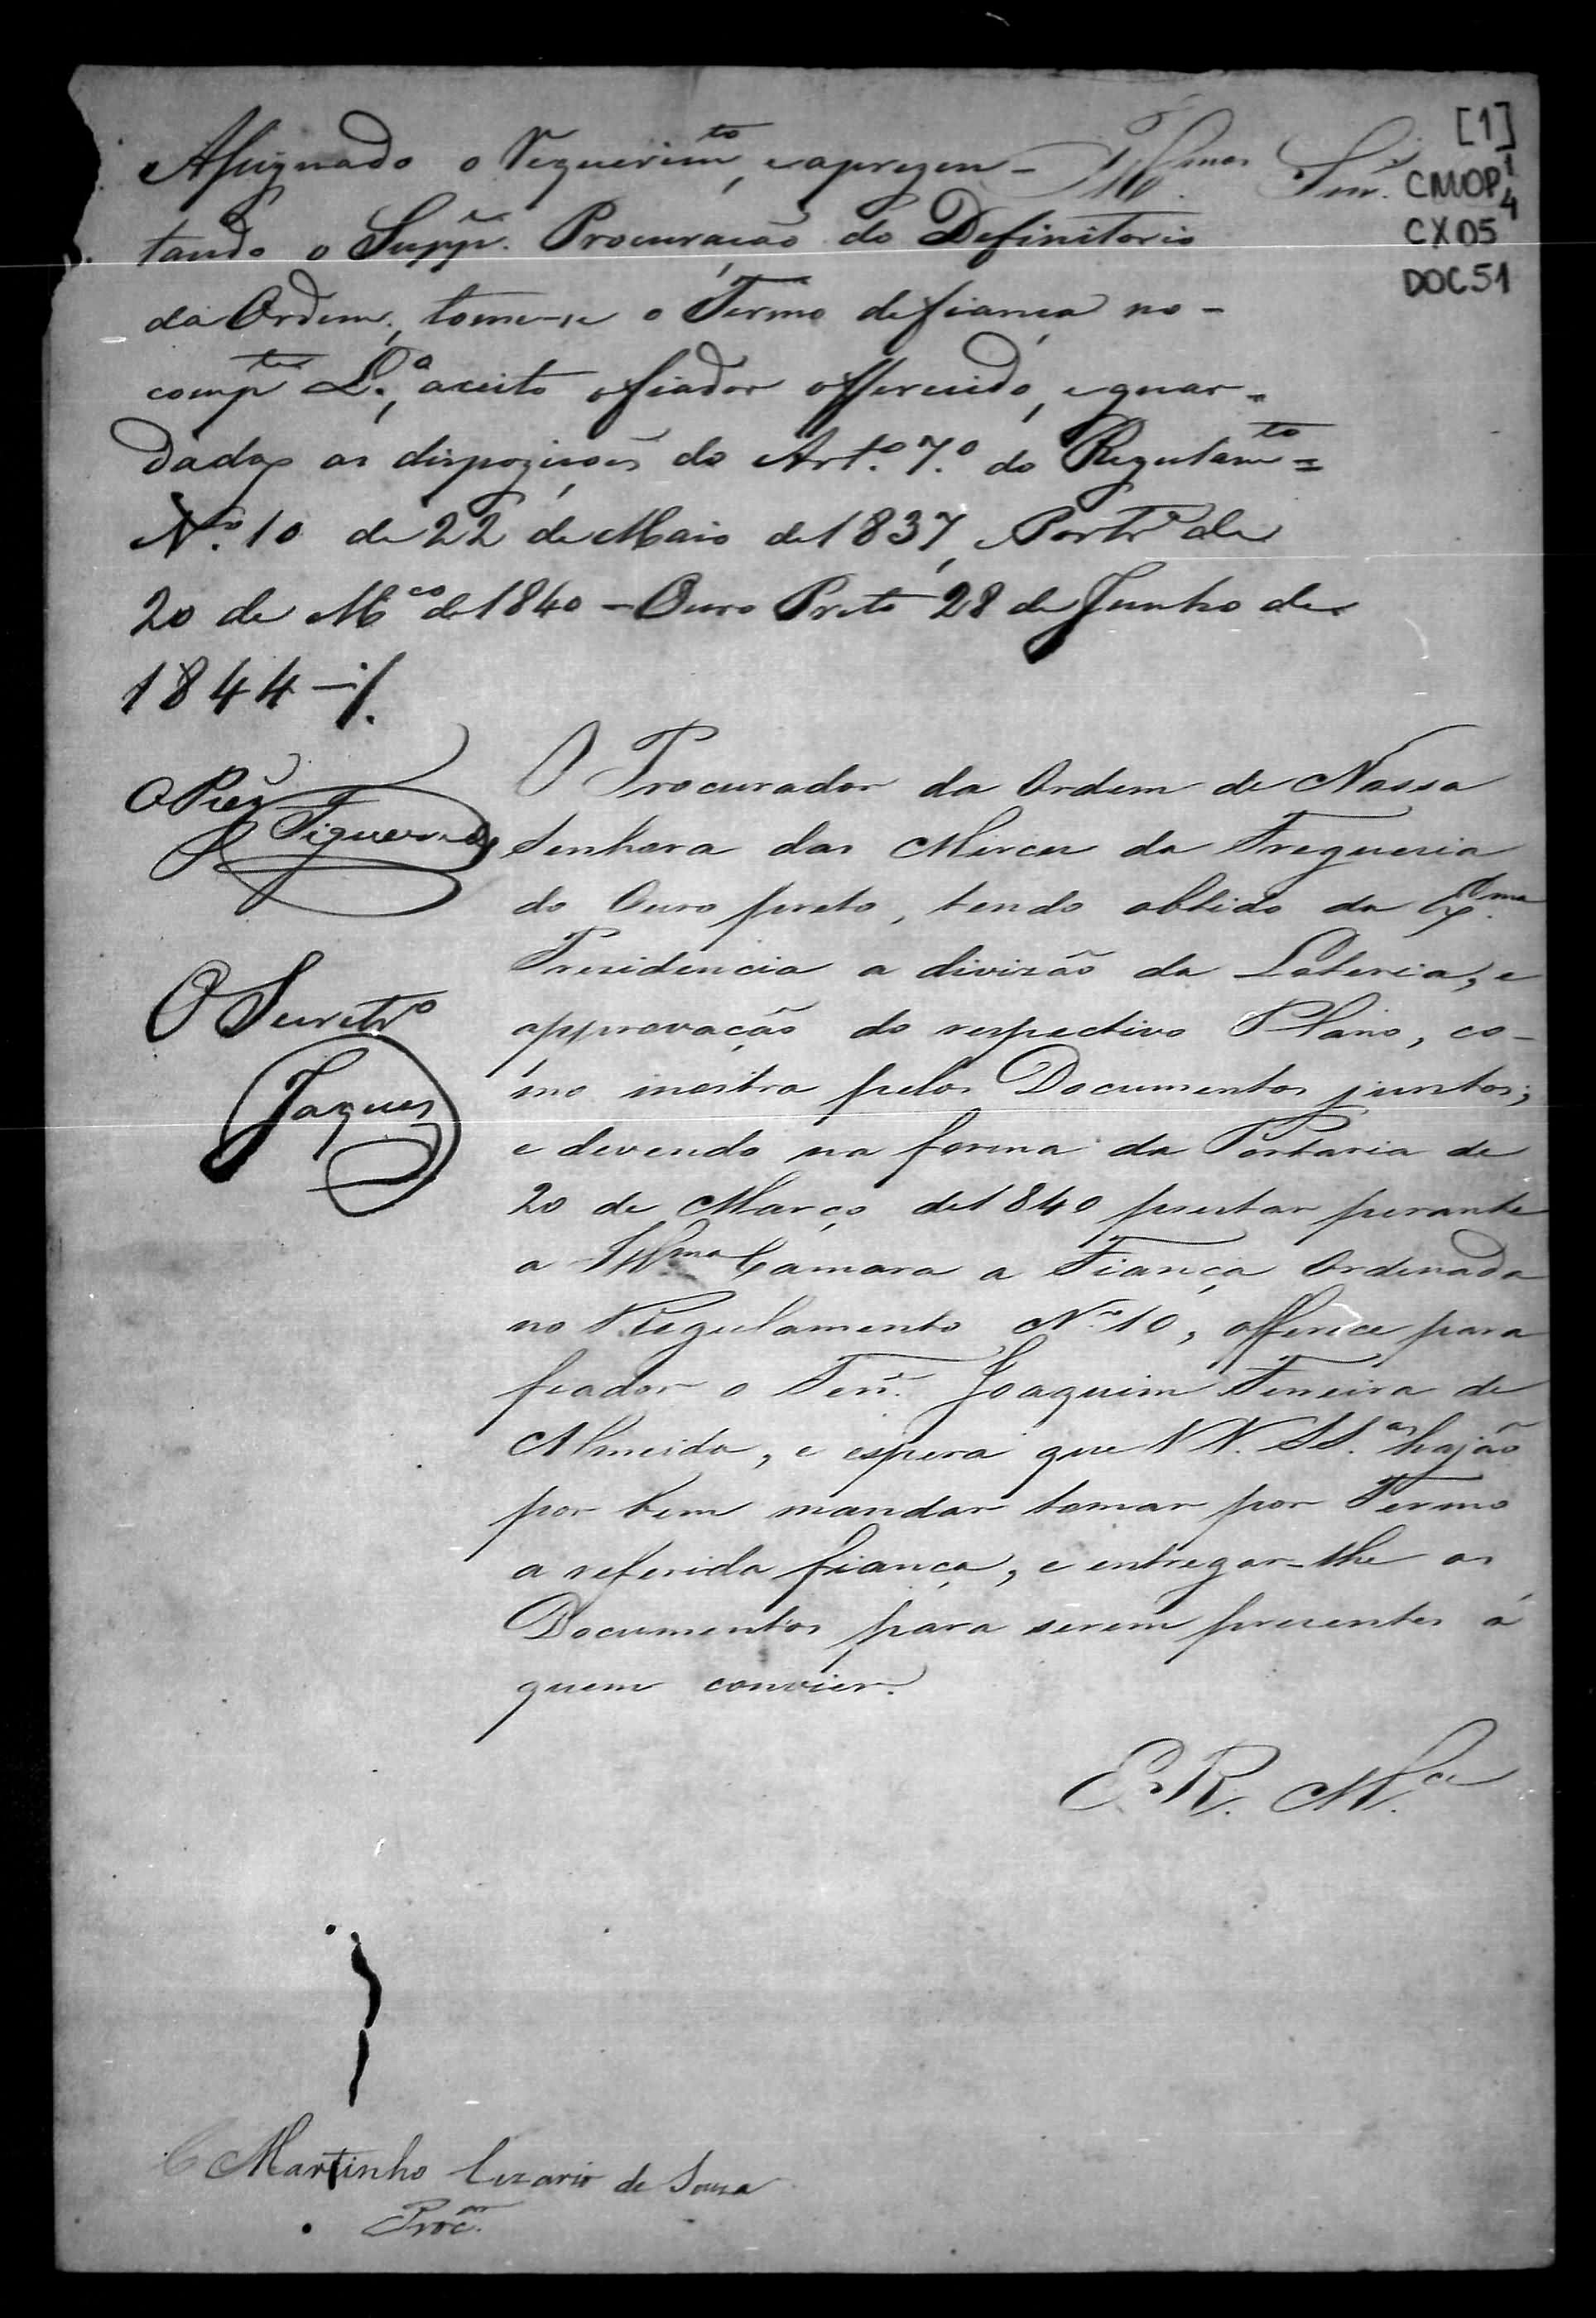 [1]
CMOP 1
4
CX 05
DOC 51
Illmos Snr.es
Assignado o Requerimto, e aprezen-
tando o Suppe. Procuração do Definitorio
da Ordem, tome-se o Termo de fiança no-
compte L.o, aceito o fiador offerecido, e guar-
dadas as dispozições do Art.o 7.o do Regulamto
N.o 10 de 22 de Maio de 1837, e Portra de
20 de Mco de 1840 - Ouro Preto 28 de Junho de
1844 -/.
O Prez
Figueiredo
O Secretro
Jaques
O Procurador da Ordem de Nossa
Senhora das Merces da Freguesia
do Ouro preto, tendo obtido da Exma.
Presidencia a divizão da Loteria, e
approvação do respectivo Plano, co-
mo mostra pelos Documentos juntos;
e devendo na forma da Portaria de
20 de Março de 1840 prestar perante
a Illma Camara a Fiança Ordenada
no Regulamento N.o 10, offerece para
fiador o Ten.e Joaquim Ferreira de
Almeida, e espera que VV. SS.as hajão
por bem mandar tomar por Termo
a referida fiança, e entregar-lhe os
Documentos para serem presentes á
quem convier.
E. R. M.ce
Martinho Cezario de Souza
Proc.or